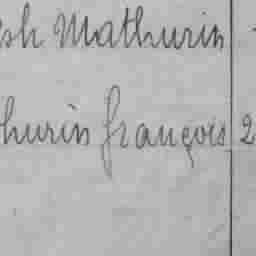 esh Mathurin
hurin françois 2